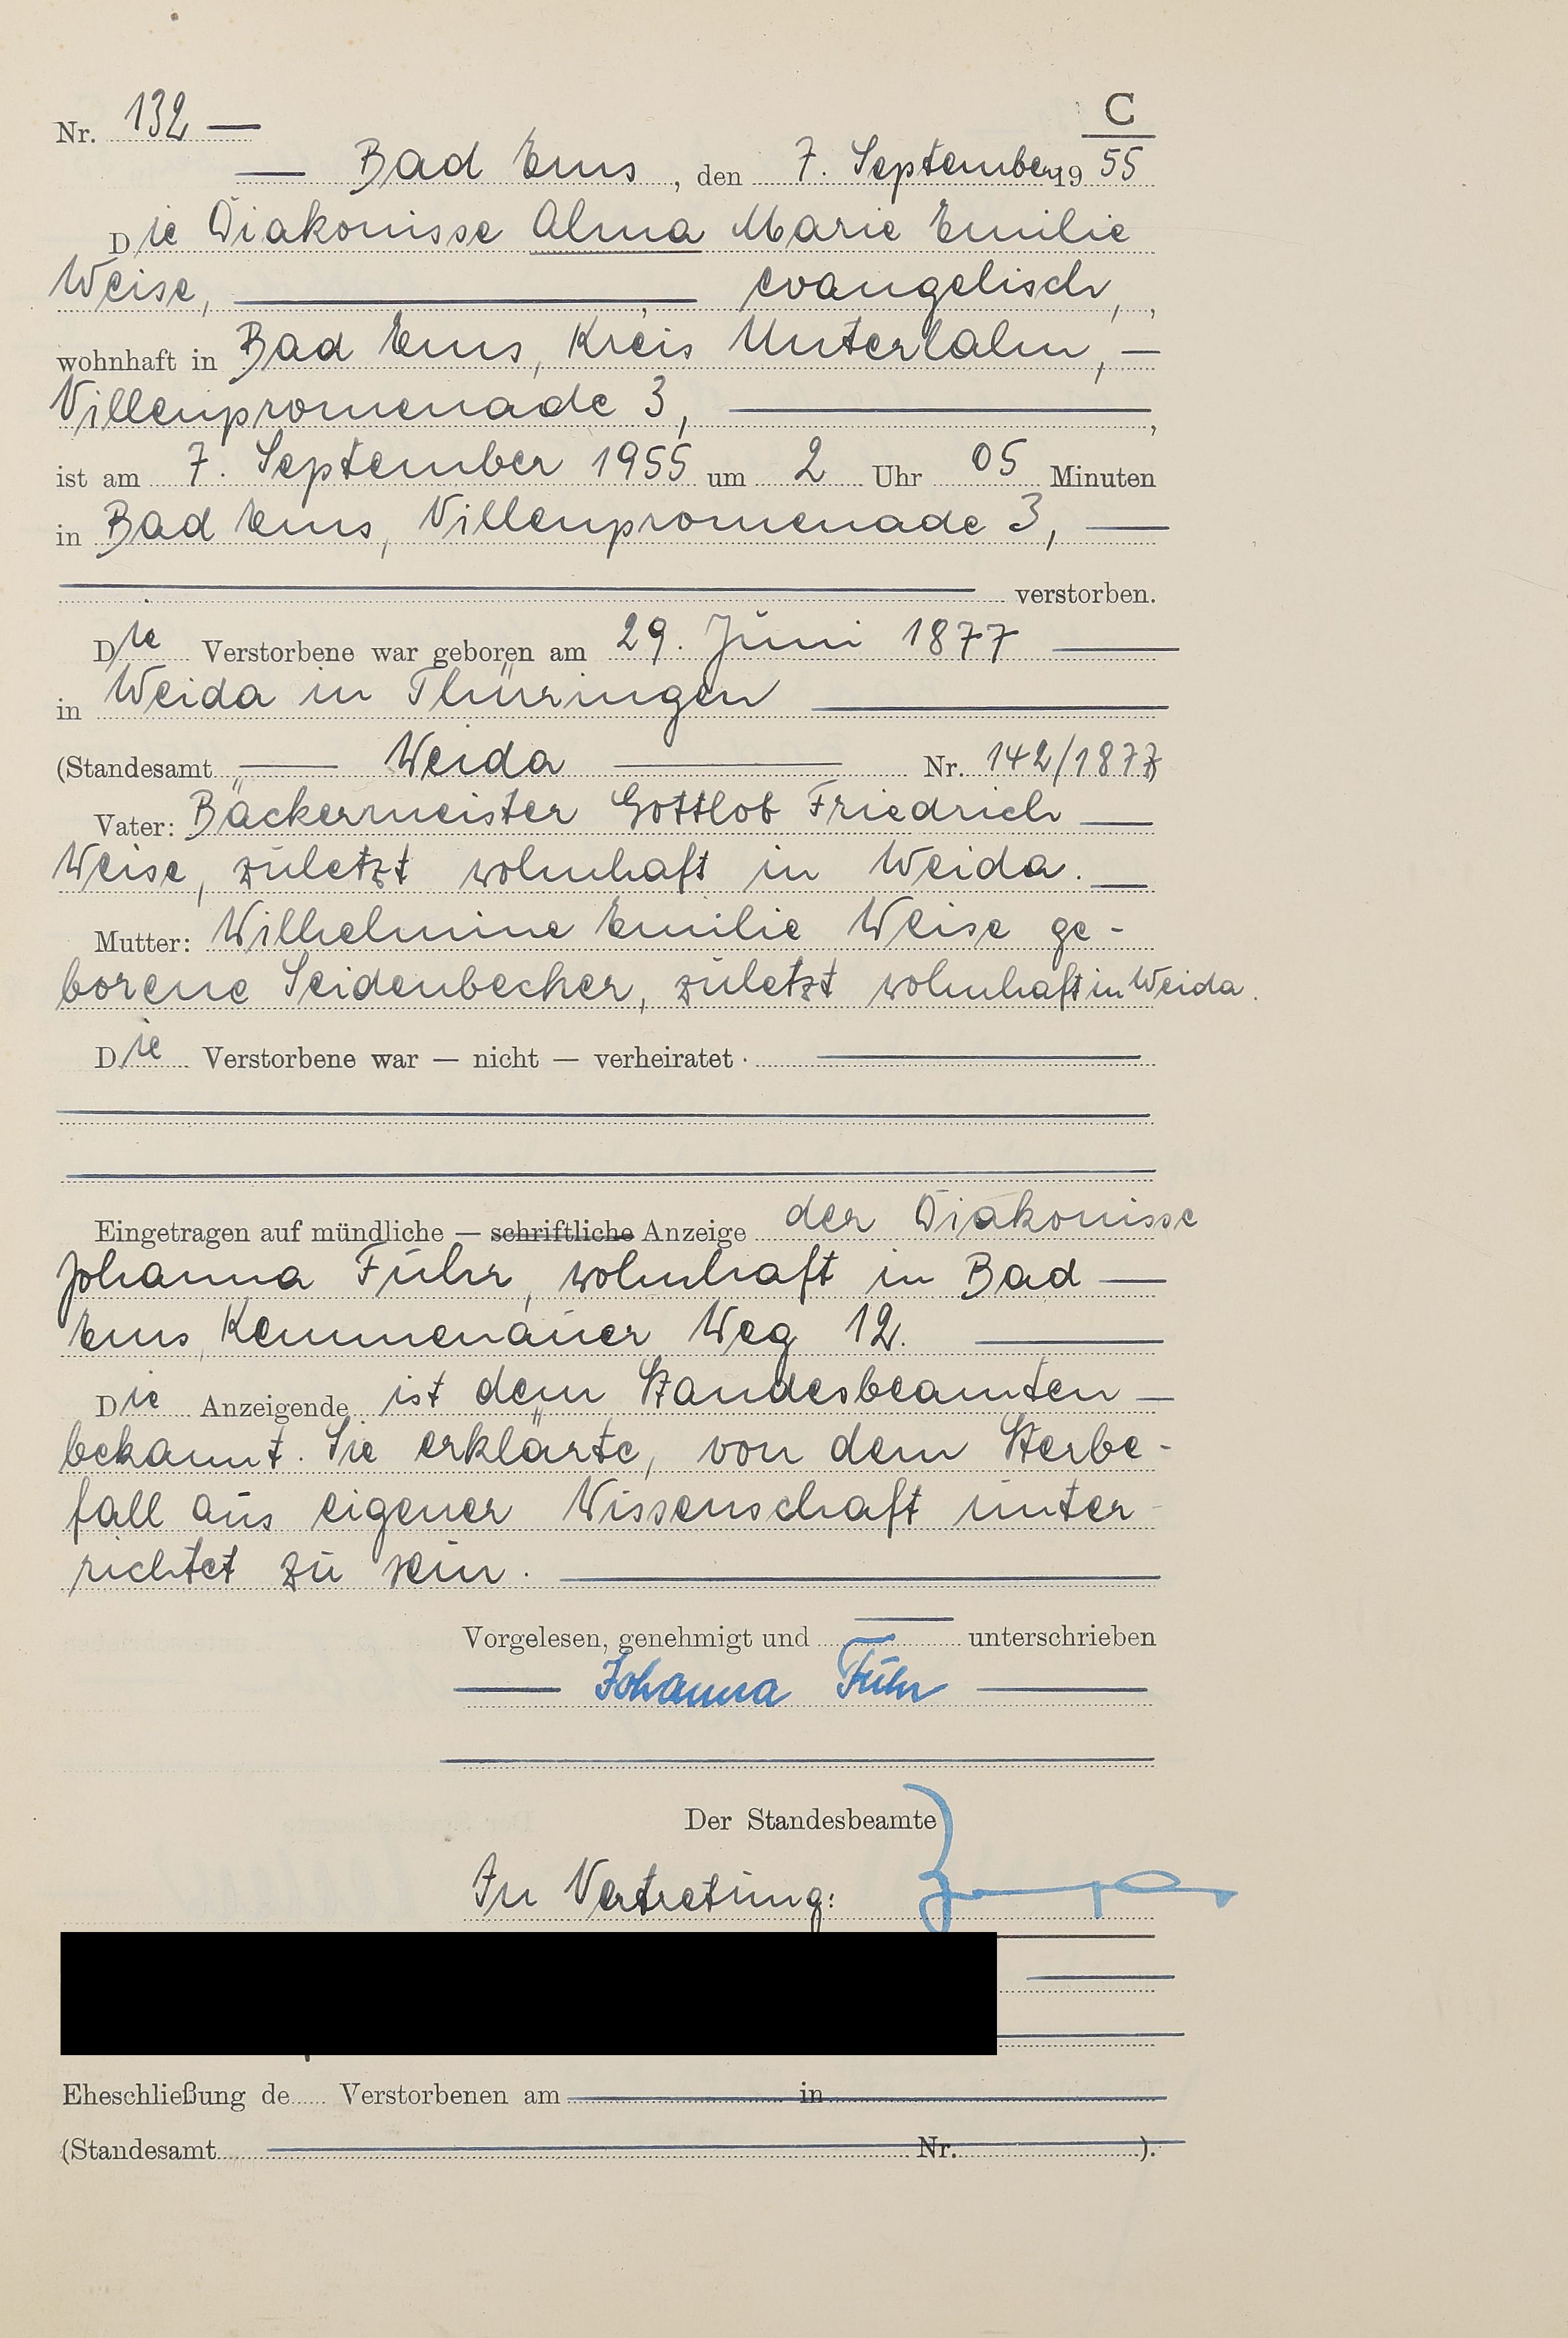 C
Nr. 132 —
— Bad Ems, den 7. September 19 55
Die Diakonisse Alma Marie Emilie
Weise, — evangelisch,,
wohnhaft in Bad Ems, Kreis Unterlahn, —
Villenpromenade 3, —,
ist am 7. September 1955 um 2 Uhr 05 Minuten
in Bad Ems, Villenpromenade 3, —
— verstorben.
Die Verstorbene war geboren am 29. Juni 1877 —
in Weida in Thüringen —
(Standesamt — Weida — Nr. 142/1877)
Vater: Bäckermeister Gottlob Friedrich —
Weise, zuletzt wohnhaft in Weida. —
Mutter: Wilhelmine Emilie Weise ge-
borene Seidenbecher, zuletzt wohnhaft in Weida.
Die Verstorbene war — nicht — verheiratet. —
Eingetragen auf mündliche — schriftliche Anzeige der Diakonisse
Johanna Fuhr, wohnhaft in Bad —
Ems, Kemmenauer Weg 12. —
Die Anzeigende ist dem Standesbeamten —
bekannt. Sie erklärte, von dem Sterbe-
fall aus eigener Wissenschaft unter-
richtet zu sein. —
Vorgelesen, genehmigt und — unterschrieben
— Johanna Fuhr —
Der Standesbeamte
In Vertretung:
Eheschließung de Verstorbenen am — in —
(Standesamt — Nr. — ).